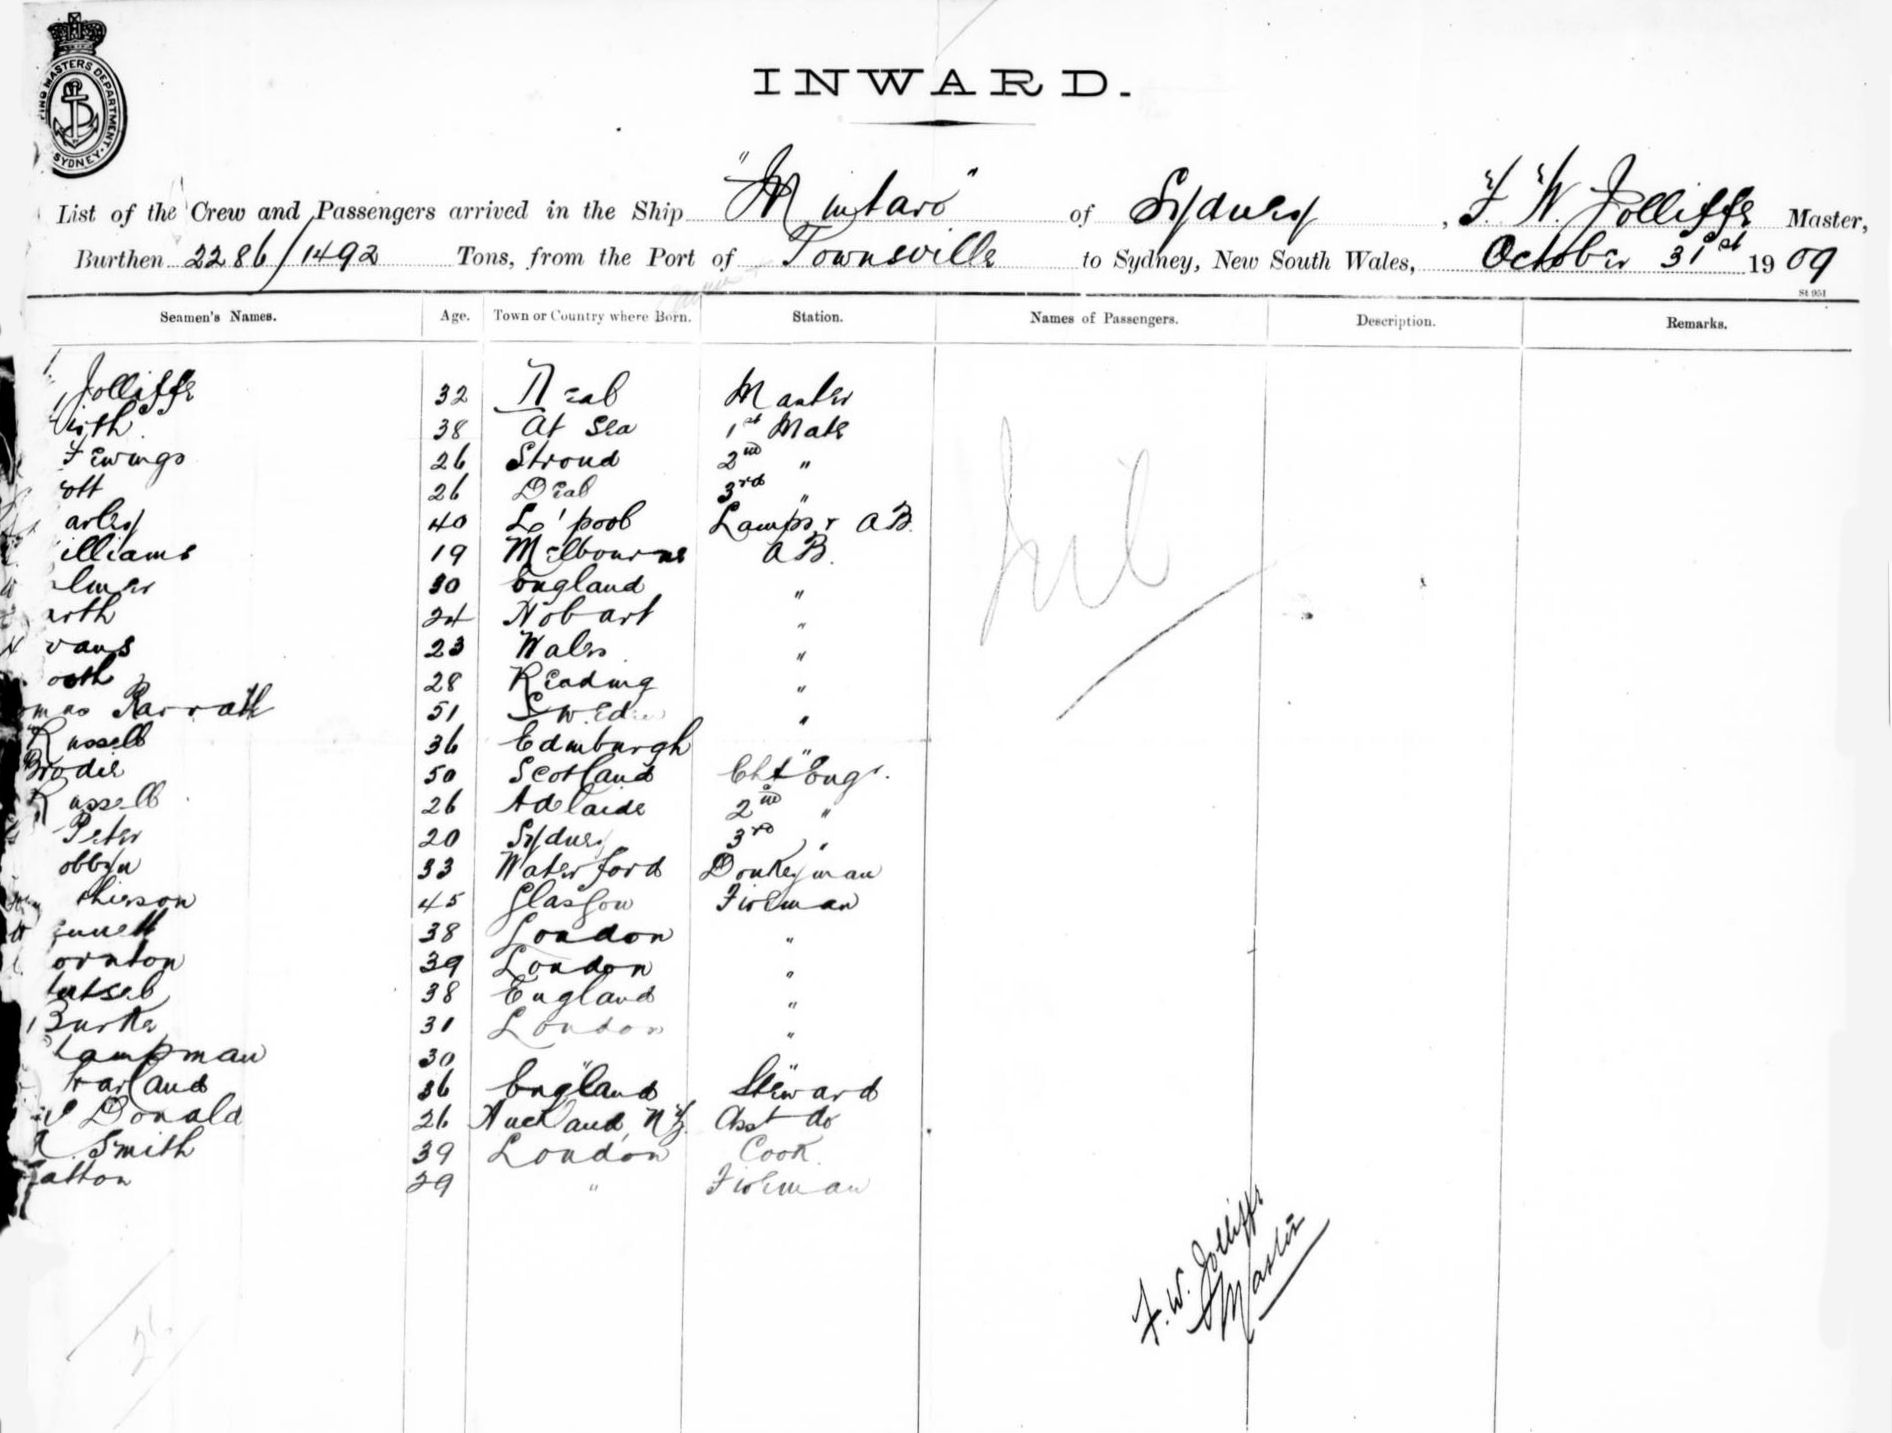 SHIPPING MASTERS DEPARTMENT. SYDNEY.
INWARD.
List of the Crew and Passengers arrived in the Ship "Mintaro" of Sydney, F. W. Jolliffe Master,
Burthen 2286/1492 Tons, from the Port of Townsville to Sydney, New South Wales, October 31st 1909
St 951
Seamen's Names. Age. Town or Country where Born. Station. Names of Passengers. Description. Remarks.
Jolliffe 32 Deal Master
irth 38 At Sea 1st Mate
Fewings 26 Stroud 2nd "
ott 26 Deal 3rd "
arley 40 L'pool Lamps & AB.
illiams 19 Melbourne AB.
lmer 30 England "
arth 24 Hobart "
vans 23 Wales "
ooth 28 Reading "
omas Rarrath 51 Sweden "
Russell 36 Edinburgh "
Brodie 50 Scotland Chf Engr.
Russell 26 Adelaide 2nd "
Peter 20 Sydney 3rd "
obbyn 33 Waterford Donkeyman
herson 45 Glasgow Fireman
ennett 38 London "
ornton 39 London "
utsel 38 England "
Burke 31 London "
hampman 30 " "
harland 36 England Steward
Donald 26 Auckland, NZ. Asst do
R. Smith 39 London Cook.
atton 29 " Fireman
Nil
F. W. Jolliffe
Master
26